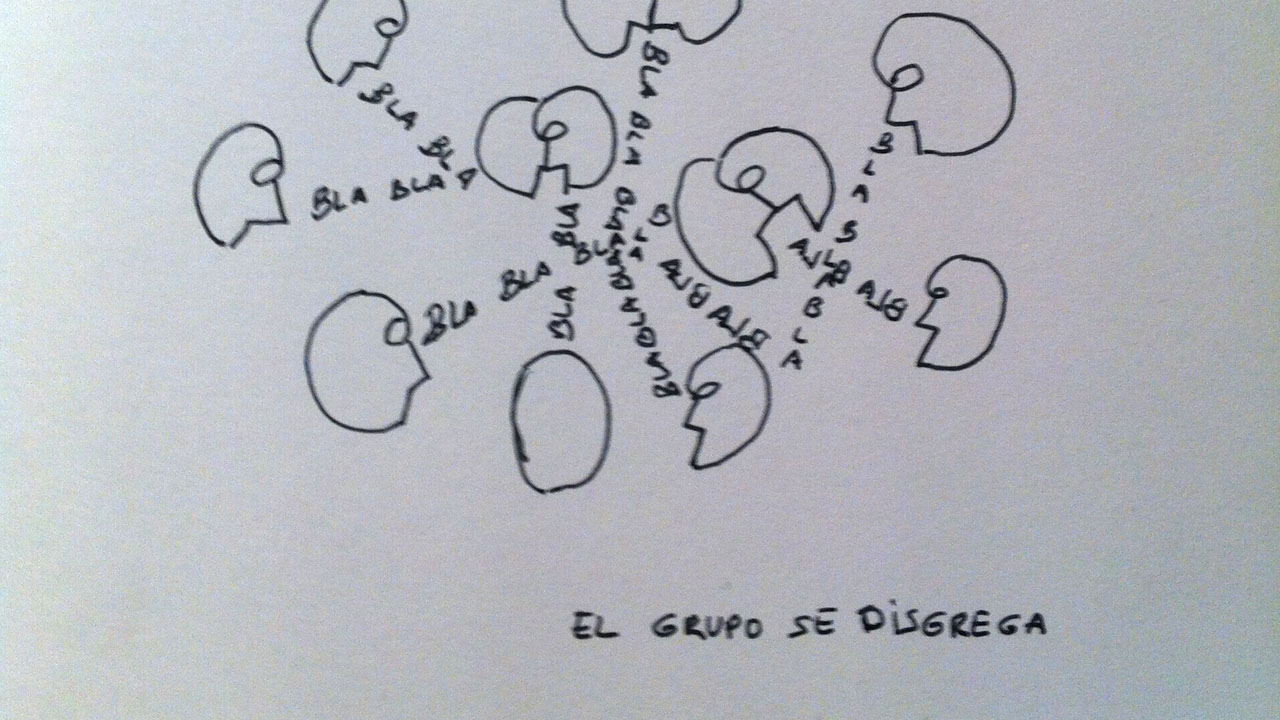 BLA BLA
BLA BLA
BLA BLA BLA
BLA BLA BLA
BLA BLA
BLA BLA BLA
BLA BLA
BLA BLA BLA
BLA BLA
BLA
EL GRUPO SE DISGREGA